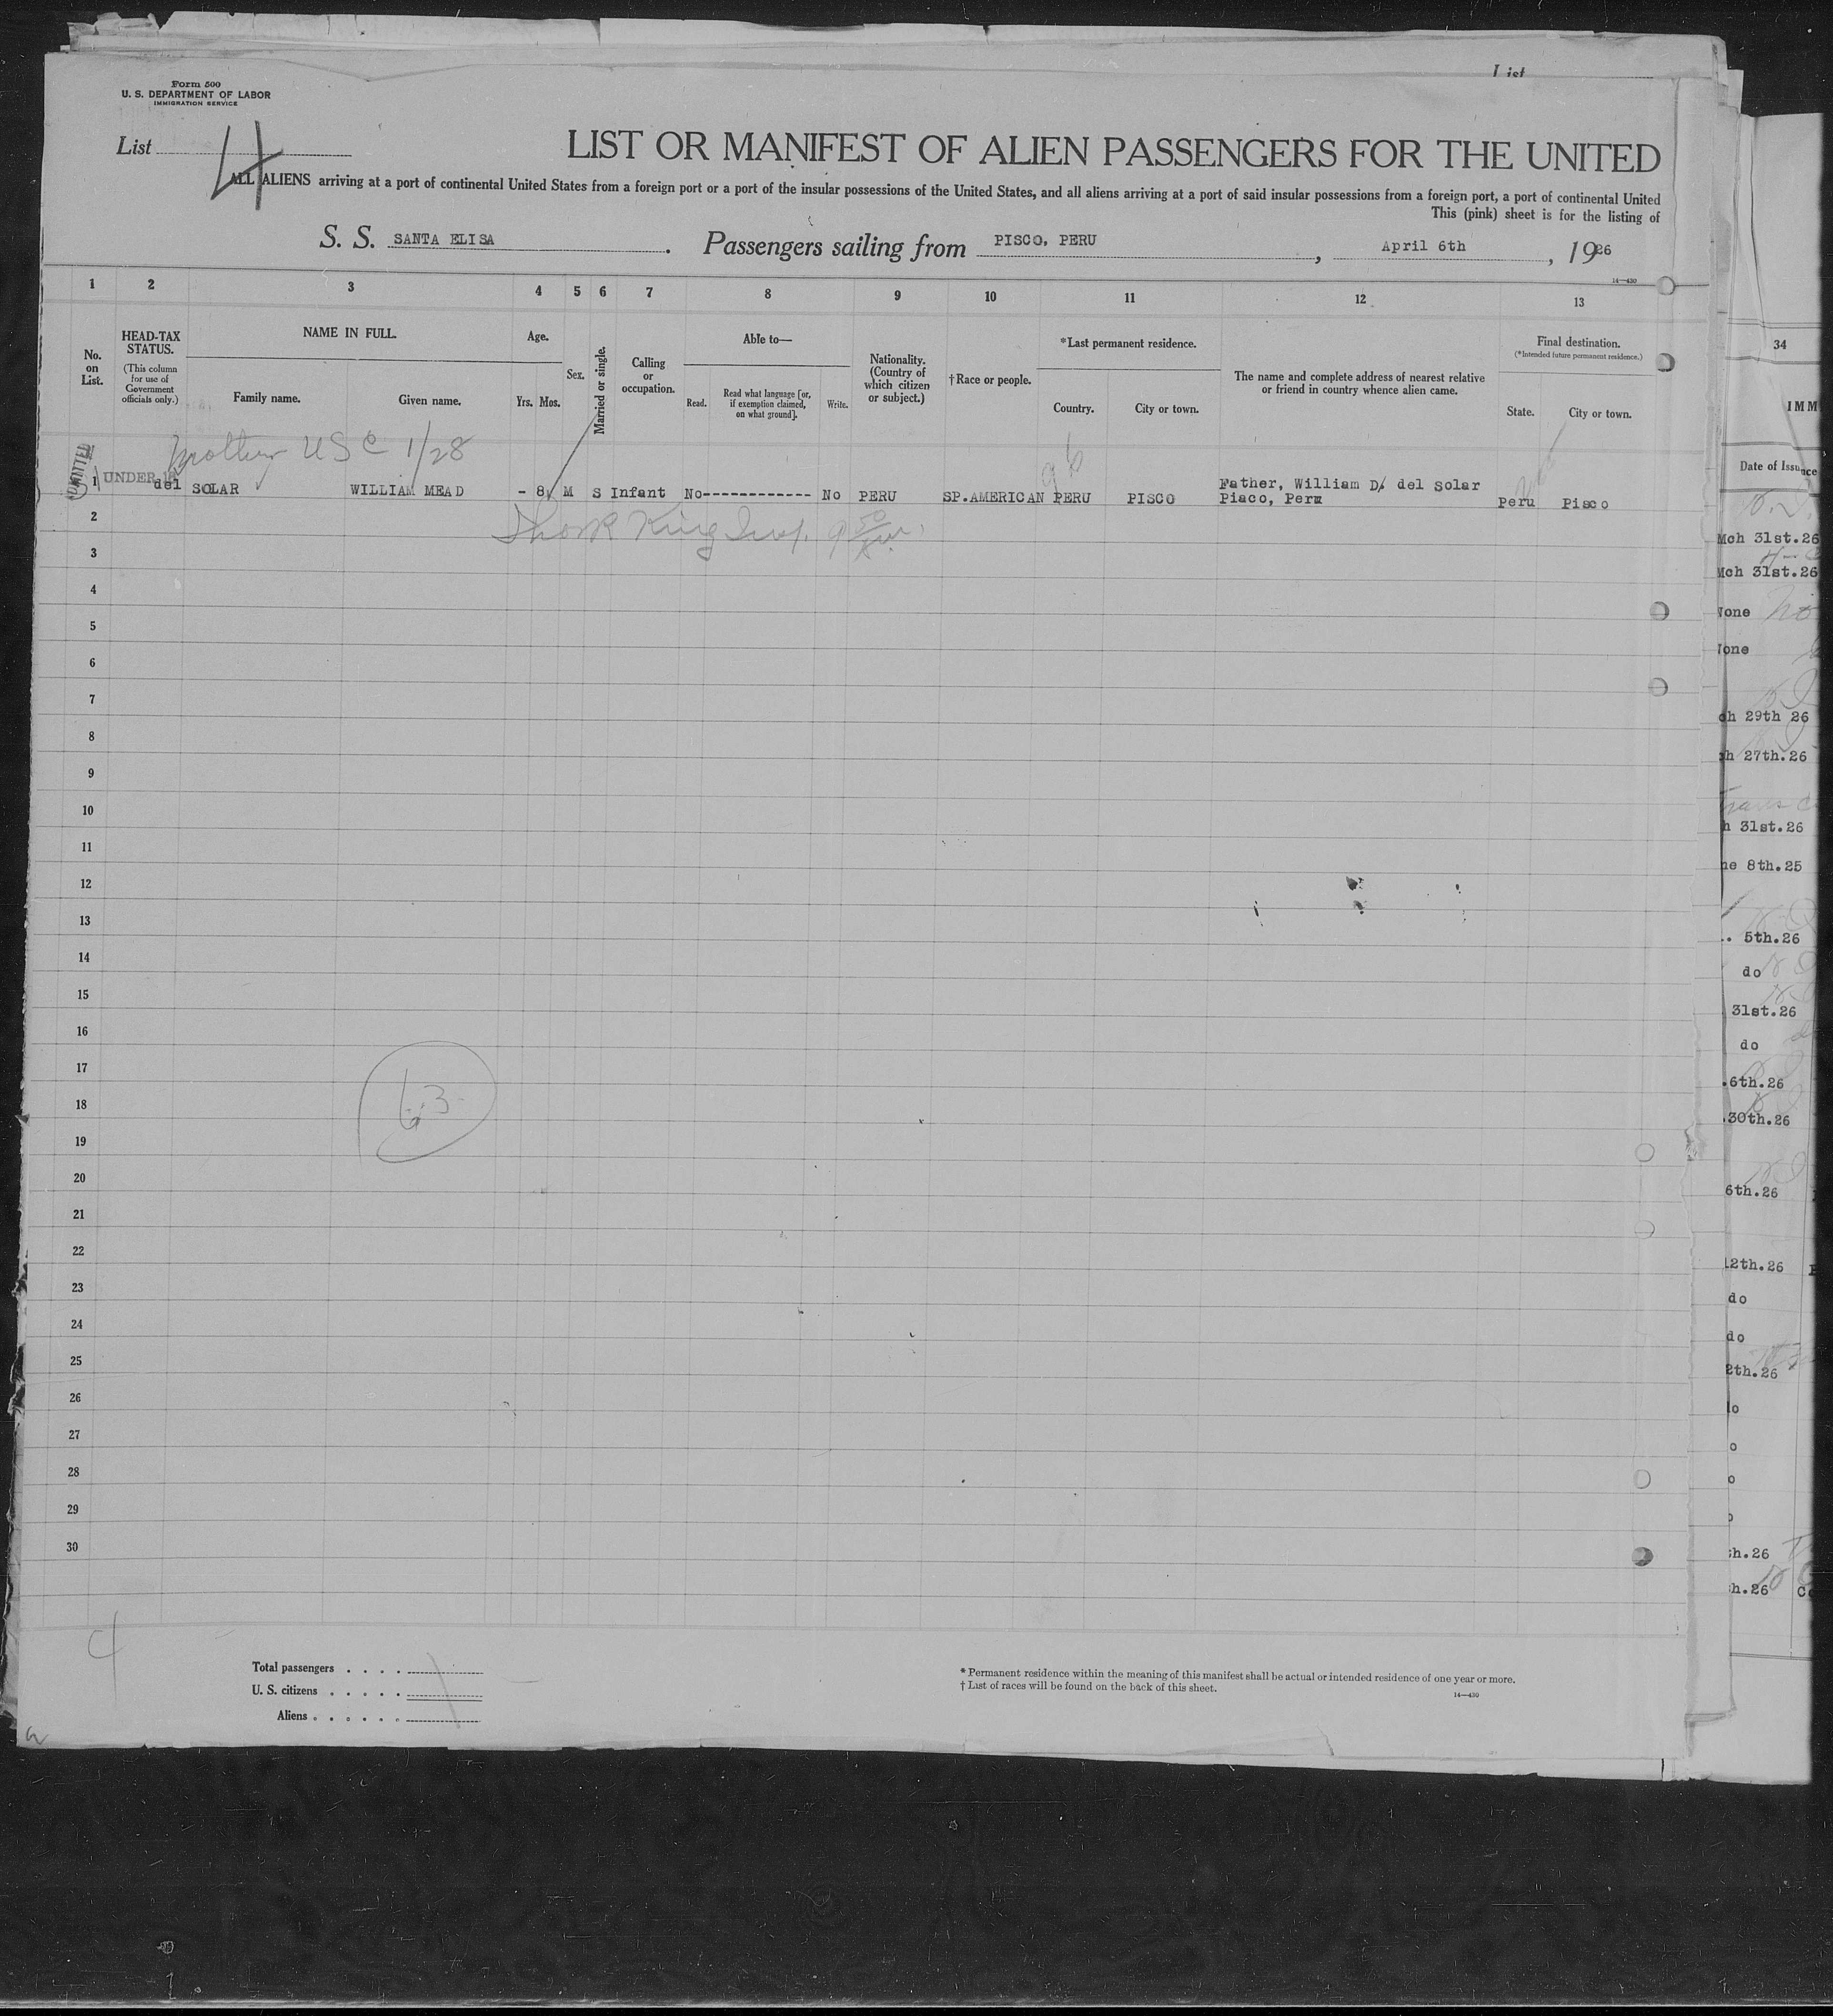 List
Form 500
U. S. DEPARTMENT OF LABOR
IMMIGRATION SERVICE
List 4
LIST OR MANIFEST OF ALIEN PASSENGERS FOR THE UNITED
ALL ALIENS arriving at a port of continental United States from a foreign port or a port of the insular possessions of the United States, and all aliens arriving at a port of said insular possessions from a foreign port, a port of continental United
This (pink) sheet is for the listing of
S. S. SANTA ELISA. Passengers sailing from PISCO, PERU, April 6th, 1926
14—430
1 2 3 4 5 6 7 8 9 10 11 12 13
No. on List.
HEAD-TAX STATUS.
(This column for use of Government officials only.)
NAME IN FULL.
Family name.
Given name.
Age.
Yrs. Mos.
Sex.
Married or single.
Calling or occupation.
Able to—
Read.
Read what language [or, if exemption claimed, on what ground].
Write.
Nationality. (Country of which citizen or subject.)
†Race or people.
*Last permanent residence.
Country.
City or town.
The name and complete address of nearest relative or friend in country whence alien came.
Final destination.
(*Intended future permanent residence.)
State.
City or town.
34
IMM
Date of Issuance
mother USC 1/28
ADMITTED
1 UNDER 16 del SOLAR WILLIAM MEAD - 8 M S Infant No------------ No PERU SP.AMERICAN PERU PISCO Father, William D. del Solar
Piaco, Peru Peru Pisco
2
3
4
5
6
7
8
9
10
11
12
13
14
15
16
17
18
19
20
21
22
23
24
25
26
27
28
29
30
63
Mch 31st.26
Mch 31st.26
None No
None
ch 29th 26
ch 27th.26
h 31st.26
ne 8th.25
. 5th.26
do
31st.26
do
.6th.26
.30th.26
6th.26
12th.26
do
do
2th.26
lo
o
o
h.26
h.26
4
Total passengers . . . .
U. S. citizens . . . . .
Aliens . . . . . .
* Permanent residence within the meaning of this manifest shall be actual or intended residence of one year or more.
† List of races will be found on the back of this sheet.
14—430